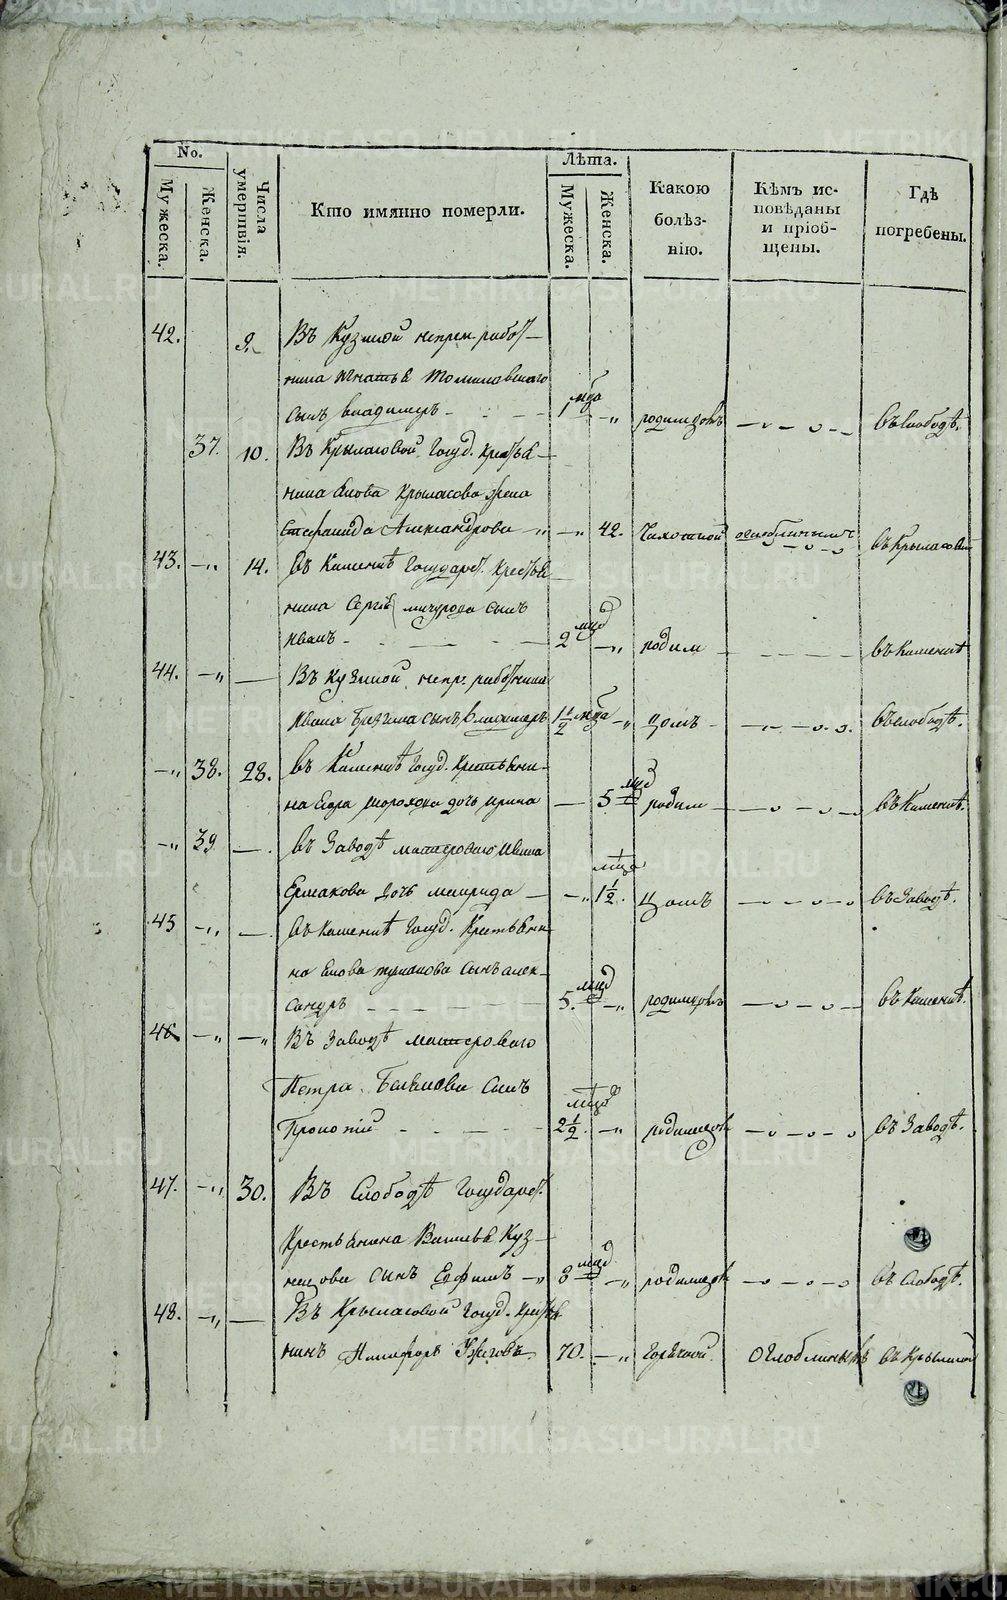 No.
Лѣта.
Мужеска.
Женска.
Числа умершвія.
Кто имянно померли.
Мужеска.
Женска.
Какою болѣз-нію.
Кѣмъ ис-повѣданы и пріоб-щены.
Гдѣ погребены.
42. 9.
Въ Кузиной непрем. работ-
ника Игнатья Томиловскаго
сынъ владимиръ - 1 мца родимцовъ въ слободѣ.
37. 10. Въ Крыласовой Госуд. Крестья-
нина Крыласова жена
Стефанида Александрова 42. Чахоткой въ Крыласовой
43. 14. въ Каменкѣ Государст. Крестья-
нина Сергѣя сынъ
Иванъ - 2 родим въ Каменкѣ
44. Въ Кузиной непр. работника
Ивана Брезгина сынъ владимиръ 1 1/2 мца цомъ въ слободѣ.
38. 28. въ Каменкѣ Госуд. Крестьяни-
на дочь ирина 5 родим въ Каменкѣ.
39 въ Заводѣ мастероваго Ивана
Ермакова дочь 1 1/2. мца цомъ въ Заводѣ.
45 въ Каменкѣ Госуд. Крестьяни-
на сынъ алек-
сандръ 5. родимцовъ въ Каменкѣ.
46 Въ Заводѣ мастероваго
Петра сынъ
2 1/2. мца родимцовъ въ Заводѣ.
47. 30. Въ Слободѣ Государст.
Крестьянина Василья Куз-
нецова сынъ Ефимъ 3 родимцовъ въ Слободѣ.
48. Въ Крыласовой Госуд. Крестья
нинъ Никифоръ 70. Горячкой Оглоблинымъ въ Крыласовой